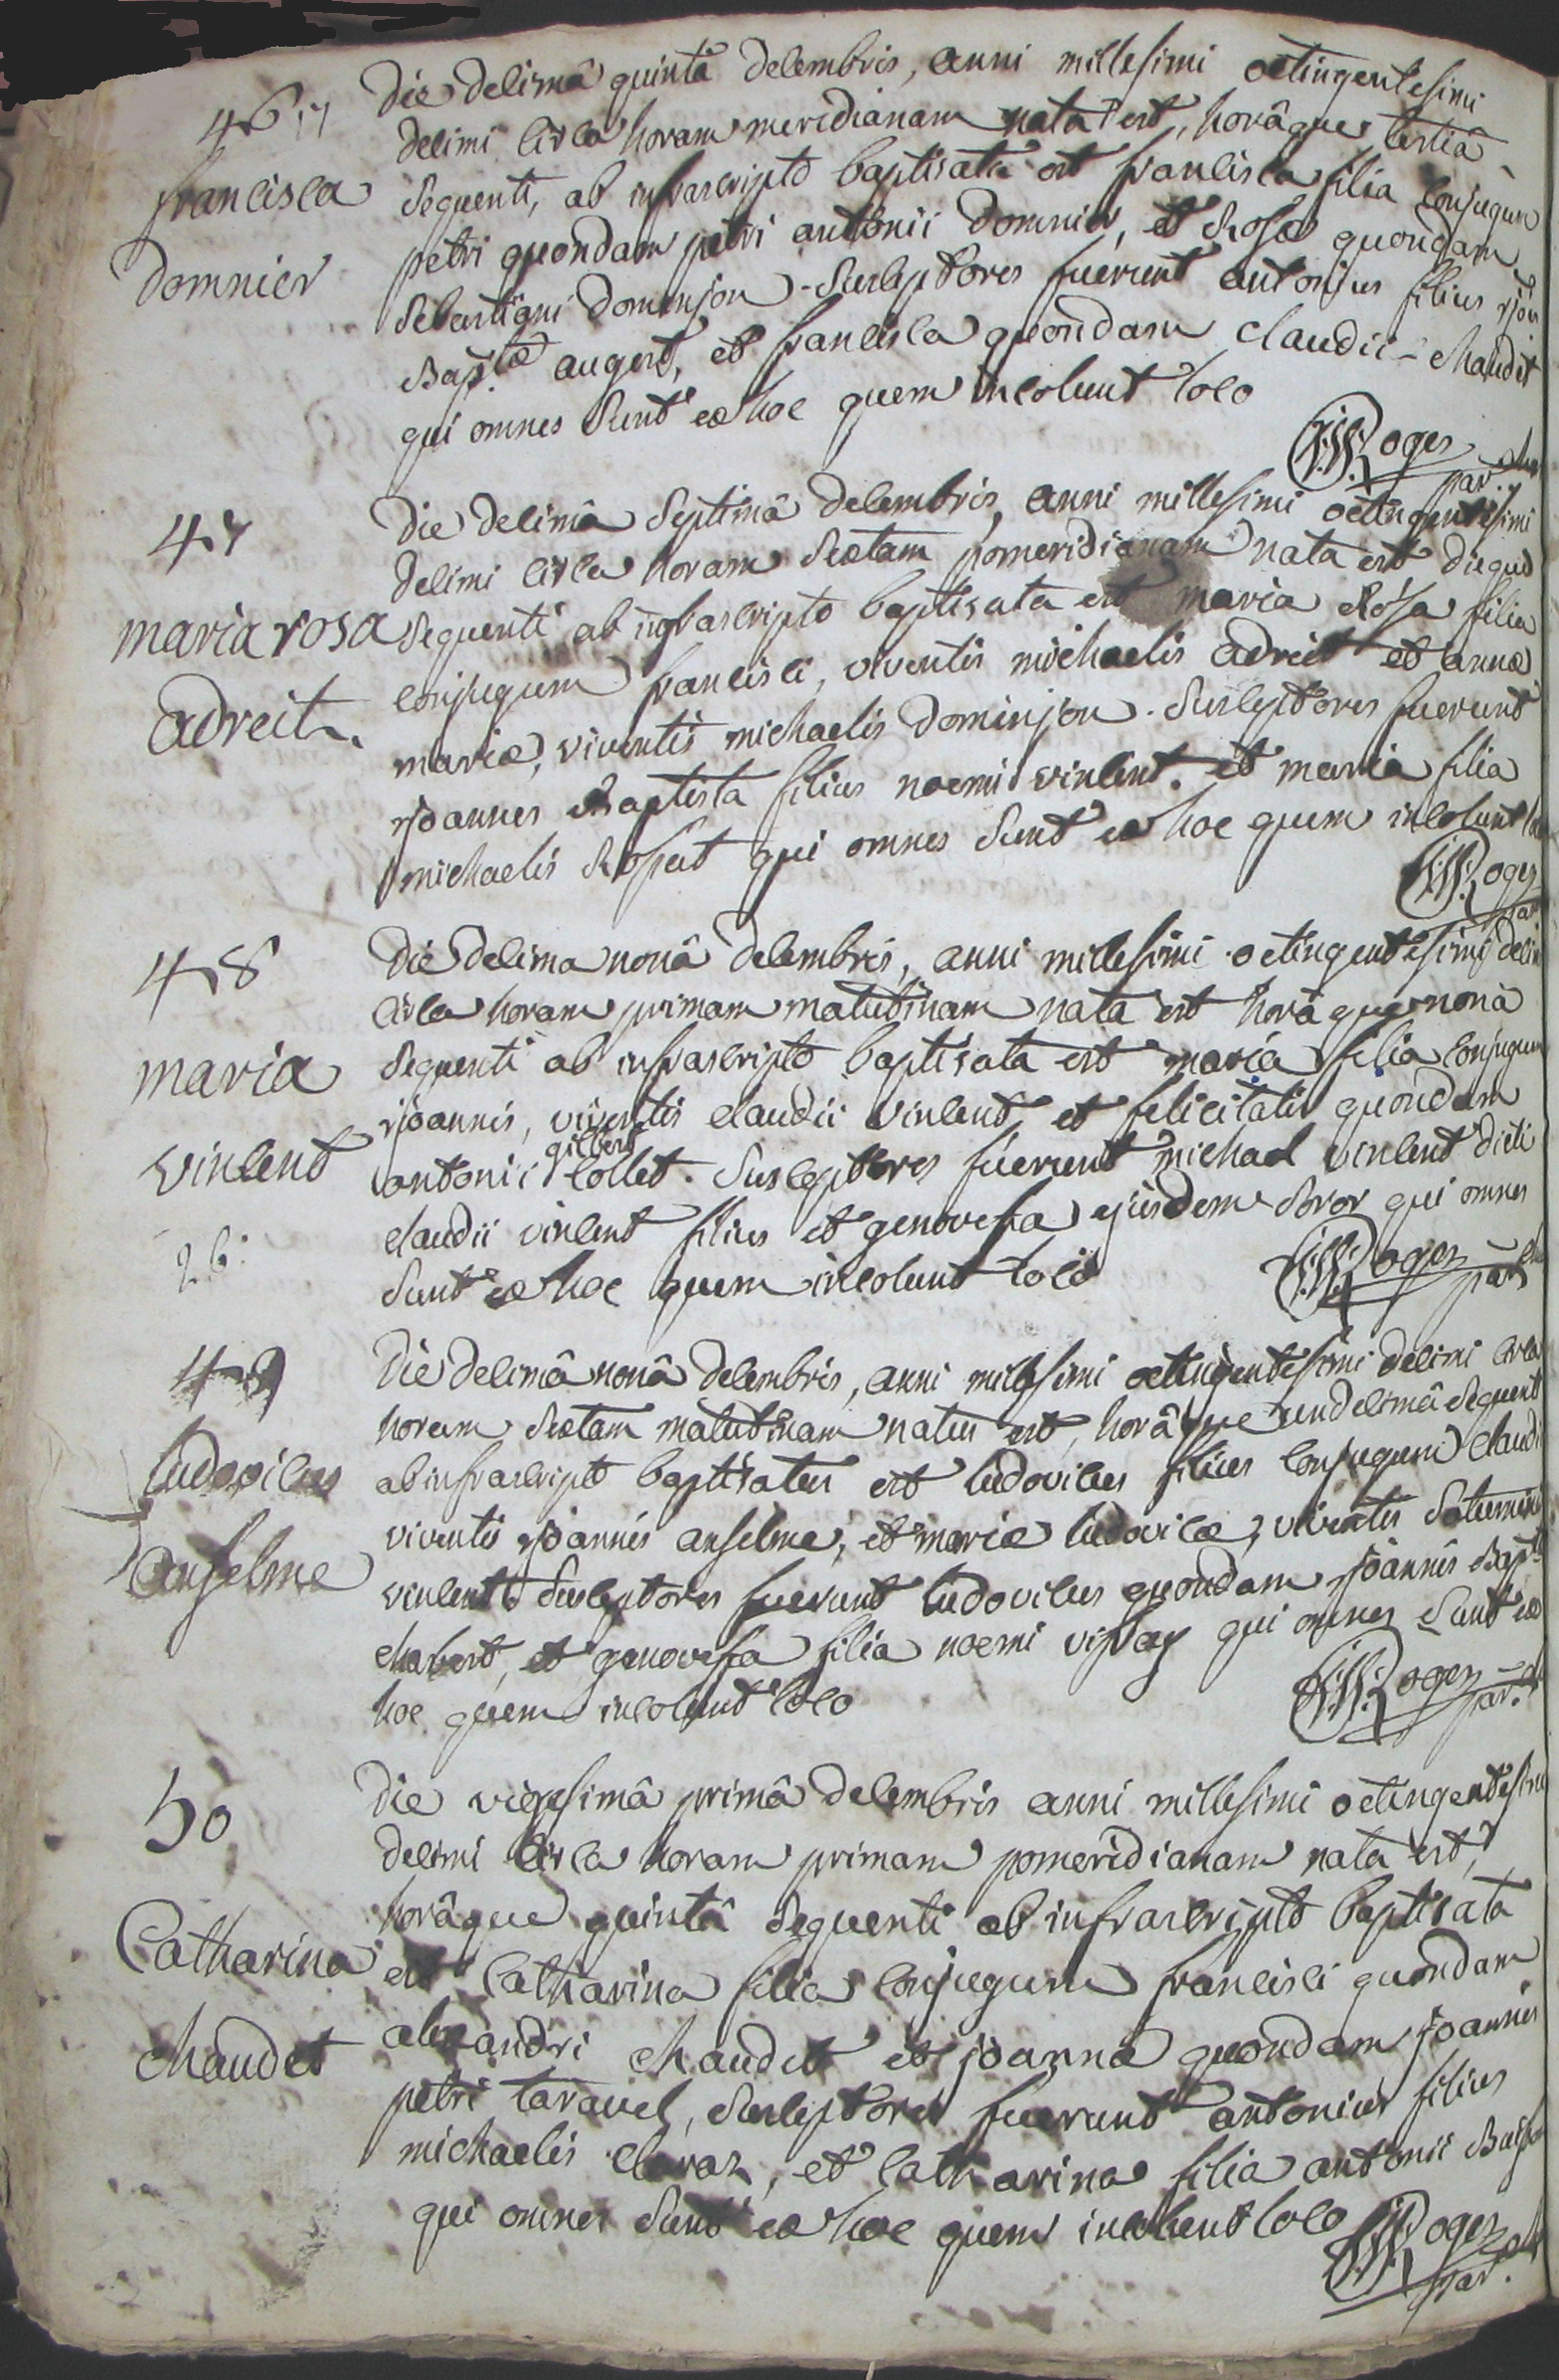 46
francisca
domnier
die decimâ quintâ decembris, anni millesimi octingentesimi
decimi circa horam meridianam nata est, horâque tertiâ
sequenti, ab infrascripto baptisata est francisca filia conjugum
petri quondam petri antonii domnier, et Rosæ quondam
Sebastiani dominjon. Susceptores fuerunt antonius filius joan
Bap.tæ augert, et francisca quondam claudii chaudet
qui omnes sunt ex hoc quem incolunt loco
Roger
par.
47
maria rosa
adreit
die decimâ septimâ decembris, anni millesimi octingentesimi
decimi circa horam sextam pomeridianam nata est dieque
sequenti ab infrascripto baptisata est maria Rosa filia
conjugum francisci, viventis michaelis adreit et annæ
mariæ, viventis michaelis dominjon. Susceptores fuerunt
joannes Baptista filius noemi vincent. et maria filia
michaelis Rosset qui omnes sunt ex hoc quem incolunt
Roger
par
48
maria
vincent
26.
die decima nonâ decembris, anni millesimi octingentesimi decimi
circa horam primam matutinam nata est horâque nonâ
sequenti ab infrascripto baptisata est maria filia conjugum
joannis, viventis claudii vincent, et felicitatis quondam
gilbert
antonii collet. Susceptores fuerunt michael vincent dicti
claudii vincent filius et genovefa ejusdem soror qui omnes
sunt ex hoc quem incolunt loco
Roger
par
49
ludovicus
anselme
die decimâ nonâ decembris, anni millesimi octingentesimi decimi circa
horam sextam matutinam natus est, horâque undecimâ sequenti
ab infrascripto baptisatus est ludovicus filius conjugum claudii
viventis joannis anselme, et mariæ ludovicæ, viventis Saturnini
vincent. Susceptores fuerunt ludovicus quondam joannis Bapt
chabert, et genovefa filia noemi qui omnes sunt ex
hoc quem incolunt loco
Roger
par.
50
Catharina
chaudet
die vigesimâ primâ decembris anni millesimi octingentesimi
decimi circa horam primam pomeridianam nata est,
horâque quintâ sequenti ab infrascripto baptisata
est Catharina filia conjugum francisci quondam
alexandri chaudet et joannæ quondam joannis
petri taravel, Susceptores fuerunt antonius filius
michaelis claraz, et catharina filia antonii
qui omnes sunt ex hoc quem incolunt loco
Roger
par.